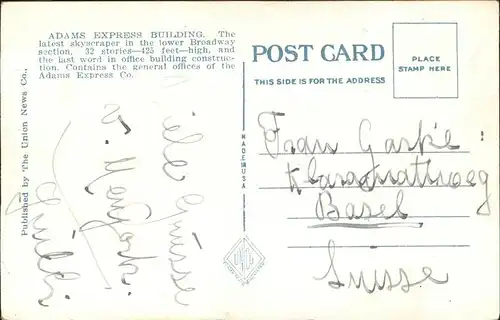 ADAMS EXPRESS BUILDING. The
latest skyscraper in the lower Broadway
section. 32 stories—425 feet—high, and
the last word in office building construc-
tion. Contains the general offices of the
Adams Express Co.
Published by The Union News Co.,
Viele Grüsse
v. New York
POST CARD
THIS SIDE IS FOR THE ADDRESS
PLACE
STAMP HERE
MADE IN USA
Frau Garke
Basel
Suisse